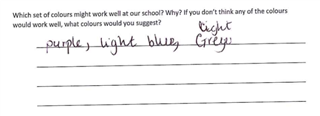 Which set of colours might work well at our school? Why? If you don't think any of the colours
would work well, what colours would you suggest?
light
purple, light blue, Grey